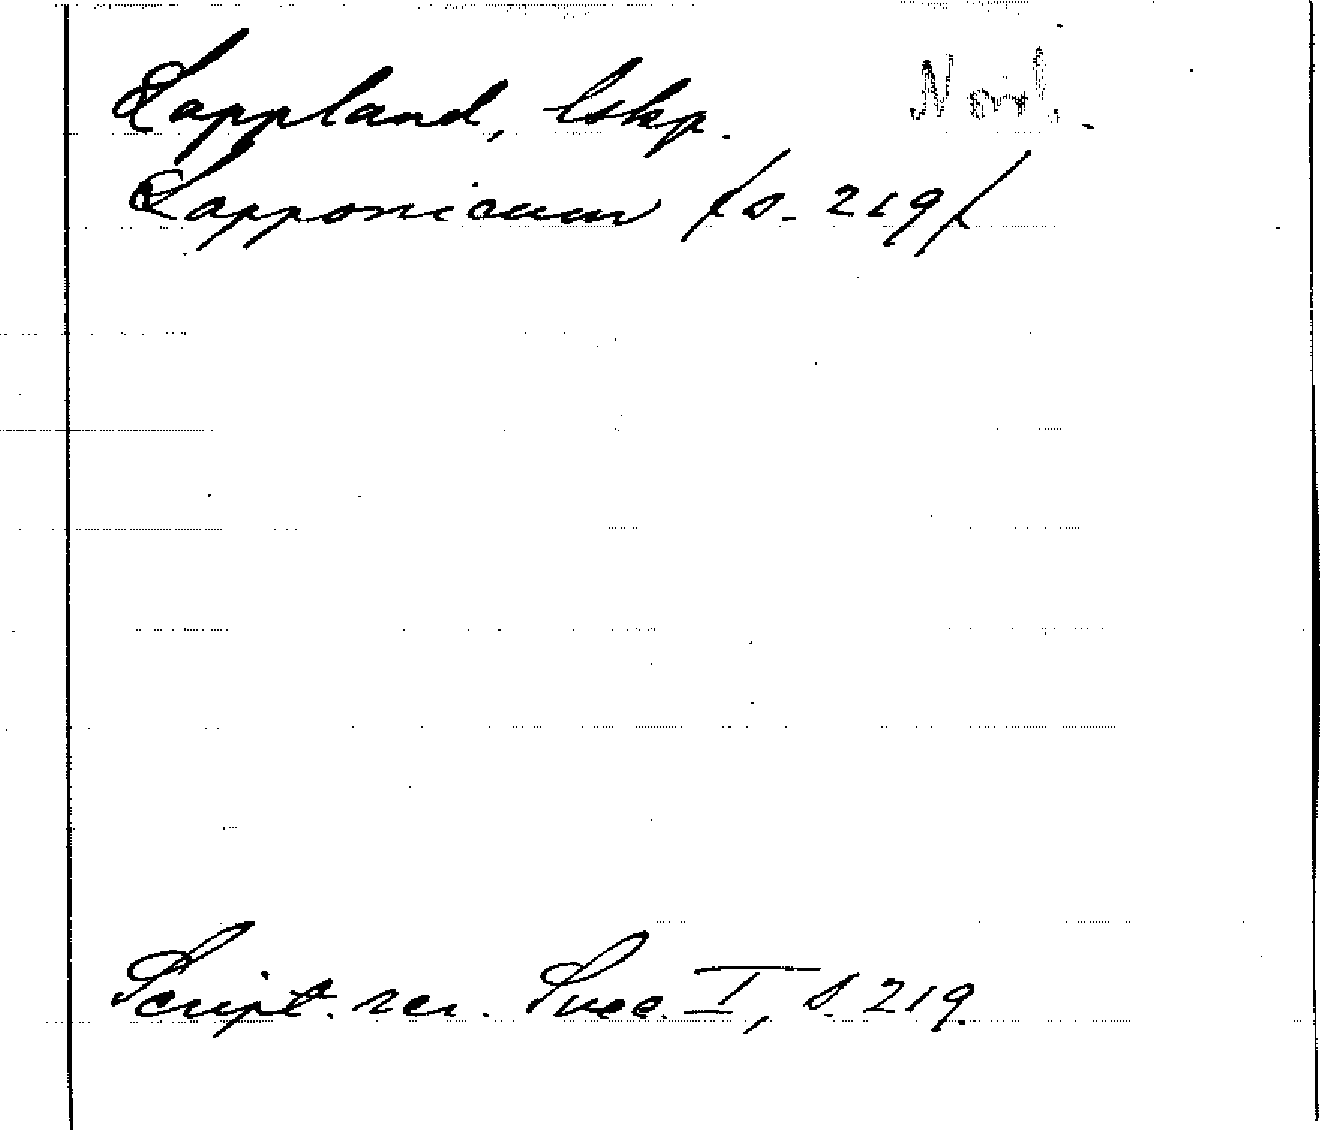 Lappland, lskp. Norrl.
Lapponicum /s. 219/
Script. rer. Suec. I, s. 219.